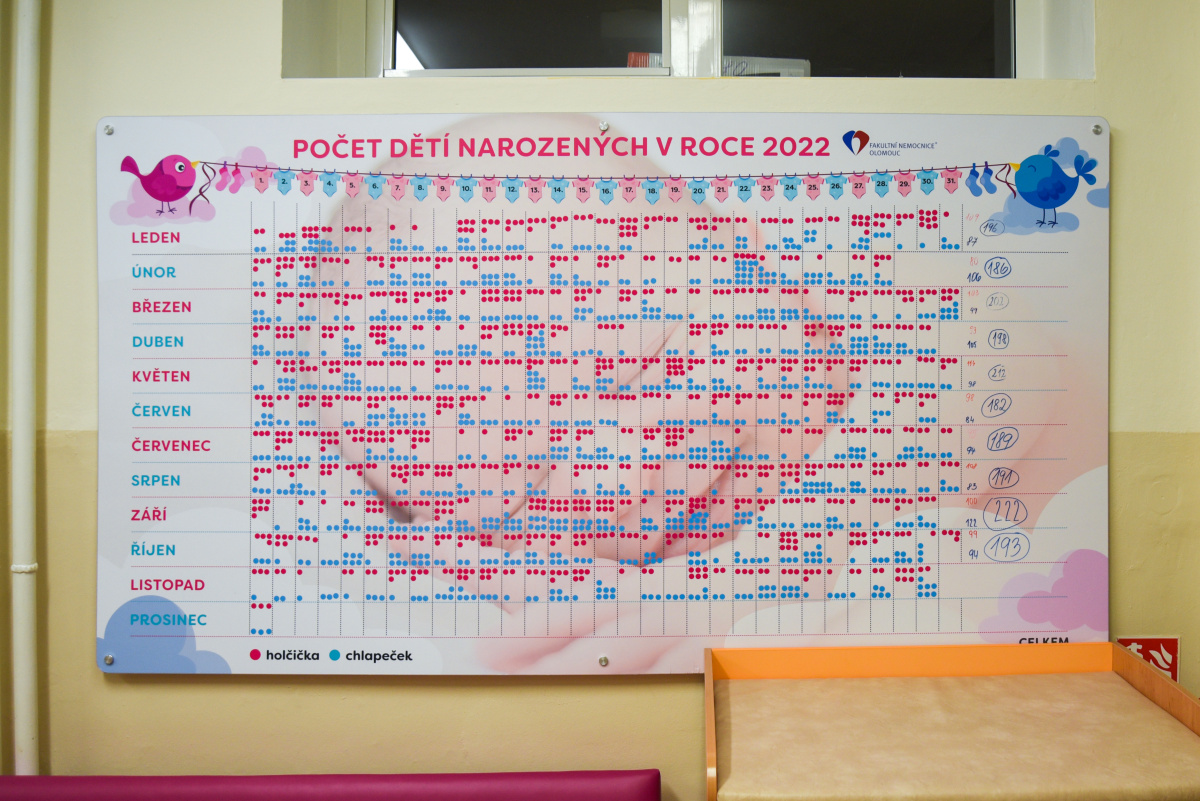 POČET DĚTÍ NAROZENÝCH V ROCE 2022
FAKULTNÍ NEMOCNICE
OLOMOUC
1. 2. 3. 4. 5. 6. 7. 8. 9. 10. 11. 12. 13. 14. 15. 16. 17. 18. 19. 20. 21. 22. 23. 24. 25. 26. 27. 28. 29. 30. 31.
LEDEN 87 196
ÚNOR 106 186
BŘEZEN 202
DUBEN 198
KVĚTEN 98 212
ČERVEN 98 84 182
ČERVENEC 94 189
SRPEN 108 83 191
ZÁŘÍ 100 122 222
ŘÍJEN 99 94 193
LISTOPAD
PROSINEC
CELKEM
holčička chlapeček